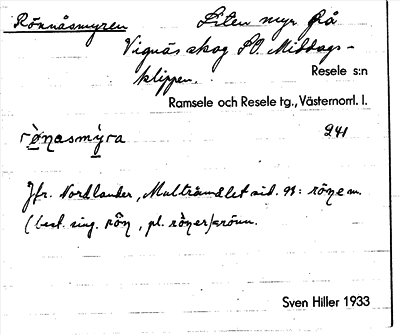 Rönnåsmyren Liten myr på
Vignäs skog SO. Middags-
klippen.
Resele s:n
Ramsele och Resele tg., Västernorrl. l.
rönasmýra 241
Jfr. Nordlander, Multråmålet sid. 98: röne m.
(best. sing. rön, pl. röner) grönn.
Sven Hiller 1933